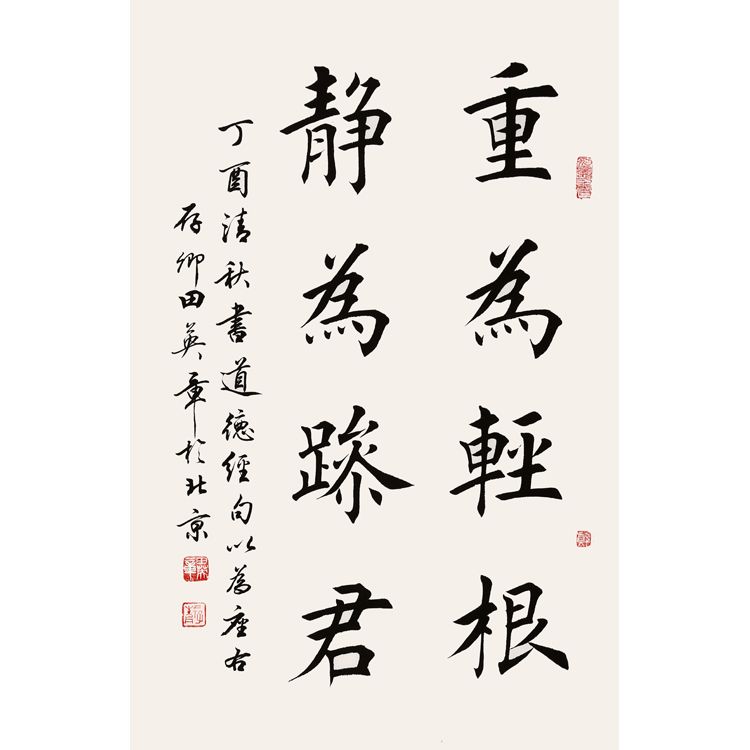 重為輕根
静為躁君
丁酉清秋書道德經句以為座右
存卿田英章於北京